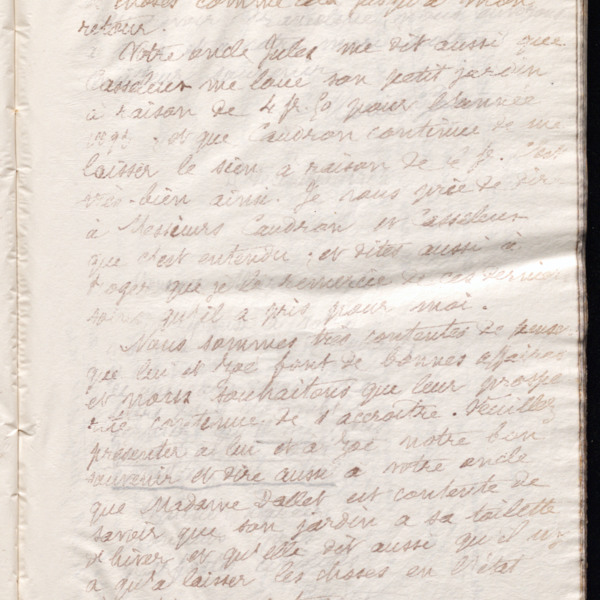 choses comme ça jusqu'à mon
retour.
Votre oncle Jules me dit aussi que
Casseleux me loue son petit jardin
à raison de 4 fr. 50 pour l'année
et que Caudron continue de me
laisser le sien à raison de fr. C'est
très-bien ainsi. Je vous prie de dire
à Messieurs Caudron et Casseleux
que c'est entendu ; et dites aussi à
Roger que je le remercie de ces derniers
soins qu'il a pris pour moi.
Nous sommes très contentes de penser
que lui et Zoé font de bonnes affaires
et nous souhaitons que leur prospé-
rité continue de s'accroître. Veuillez
présenter à lui et à Zoé notre bon
souvenir et dire aussi à votre oncle
que Madame Dallet est contente de
savoir que son jardin a sa toilette
d'hiver, et qu'elle dit aussi qu'il n'y
a qu'à laisser les choses en l'état